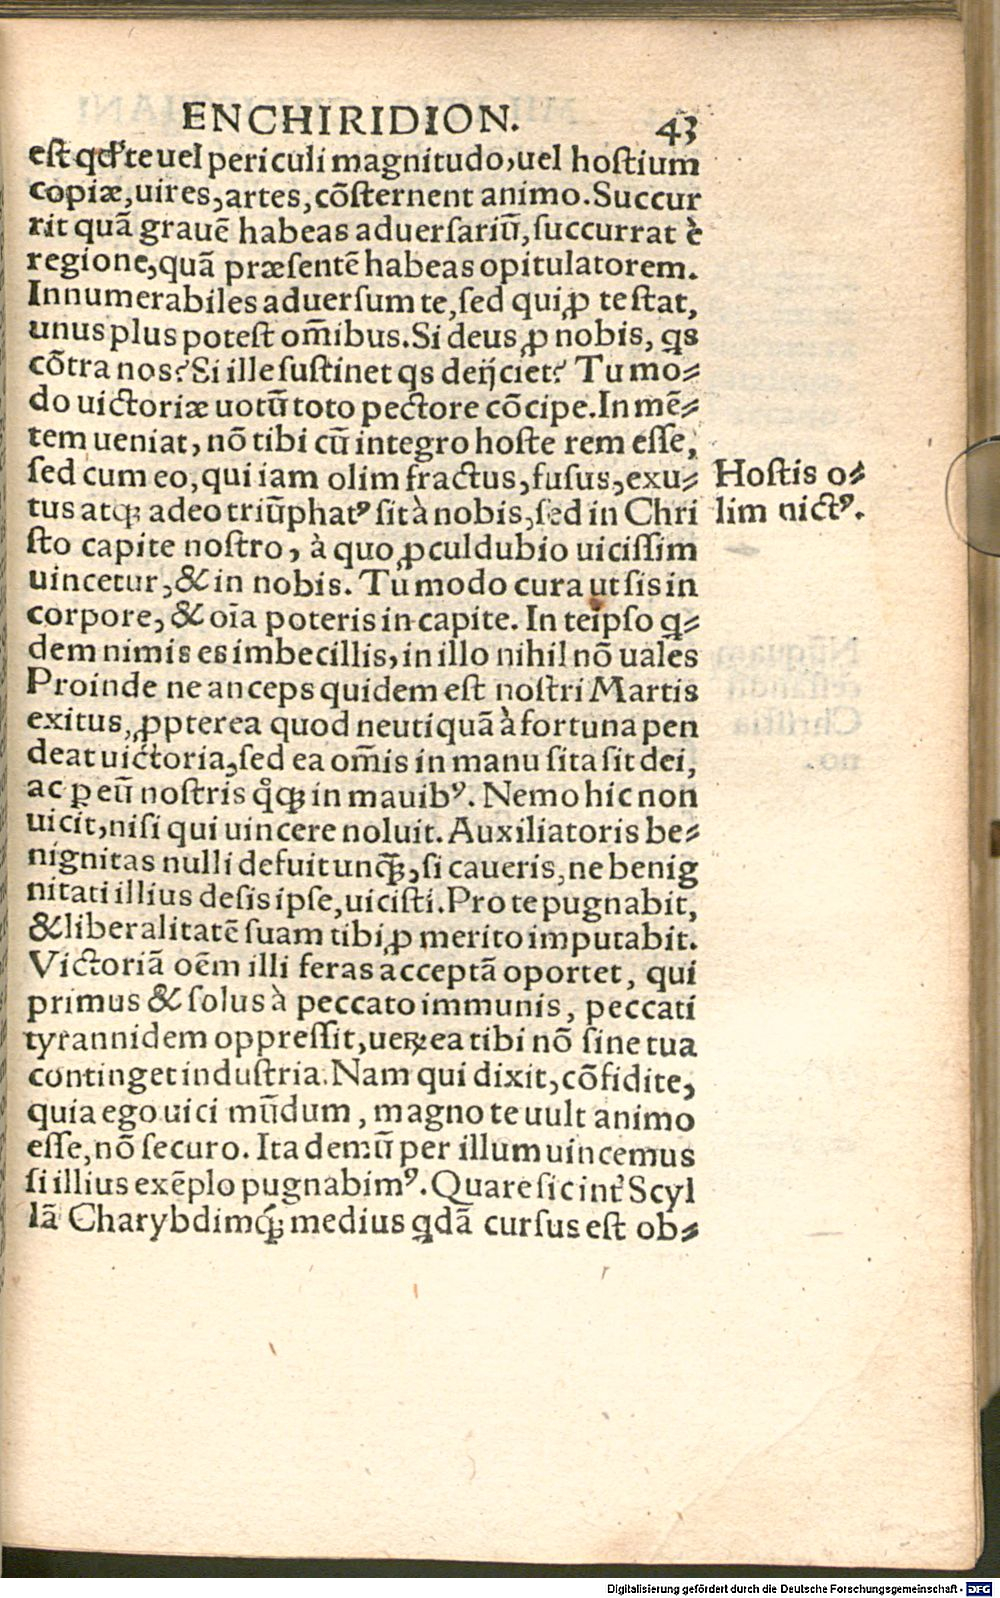 ENCHIRIDION. 43
est qđ te uel periculi magnitudo, uel hostium
copiæ, uires, artes, cõsternent animo. Succur
rit quã grauẽ habeas aduersariũ, succurrat è
regione, quã præsentẽ habeas opitulatorem.
Innumerabiles aduersum te, sed qui ꝓ te stat,
unus plus potest om̃ibus. Si deus ꝓ nobis, qs
cõtra nos? Si ille sustinet qs deijciet? Tu mo⸗
do uictoriæ uotũ toto pectore cõcipe. In mẽ⸗
tem ueniat, nõ tibi cũ integro hoste rem esse,
sed cum eo, qui iam olim fractus, fusus, exu⸗
tus atqꝫ adeo triũphatꝰ sit à nobis, sed in Chri
sto capite nostro, à quo ꝓculdubio uicissim
uincetur, & in nobis. Tu modo cura ut sis in
corpore, & oĩa poteris in capite. In teipso ꝗ⸗
dem nimis es imbecillis, in illo nihil nõ uales
Proinde ne anceps quidem est nostri Martis
exitus, ꝓpterea quod neutiquã à fortuna pen
deat uictoria, sed ea om̃is in manu sita sit dei,
ac ꝑ eũ nostris qͦqꝫ in mauibꝰ. Nemo hic non
uicit, nisi qui uincere noluit. Auxiliatoris be⸗
nignitas nulli defuit unq̃ꝫ, si caueris, ne benig
nitati illius desis ipse, uicisti. Pro te pugnabit,
& liberalitatẽ suam tibi ꝓ merito imputabit.
Victoriã oẽm illi feras acceptã oportet, qui
primus & solus à peccato immunis, peccati
tyrannidem oppressit, ueꝝ ea tibi nõ sine tua
continget industria. Nam qui dixit, cõfidite,
quia ego uici mũdum, magno te uult animo
esse, nõ securo. Ita demũ per illum uincemus
si illius exẽplo pugnabimꝰ. Quare sic int' Scyl
lã Charybdimqꝫ́ medius ꝗdã cursus est ob⸗
Hostis o⸗
lim uictꝰ.
Digitalisierung gefördert durch die Deutsche Forschungsgemeinschaft - DFG